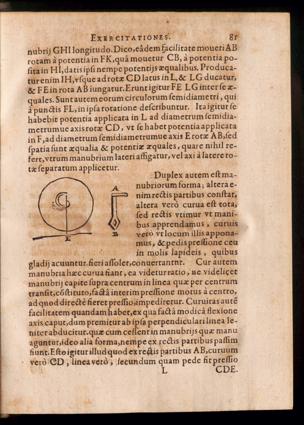 EXERCITATIONES. 81
nubrij GHI longitudo. Dico, eâdem facilitate moueri AB
rotam à potentia in FK, quâ mouetur CB, à potentia po-
sita in HI, datis ipsi nempe potentijs æqualibus. Produca-
tur enim IH, vsque ad rotæ CD latus in L, & LG ducatur,
& FE in rota AB iungatur. Erunt igitur FE LG inter se æ-
quales. Sunt autem eorum circulorum semidiametri, qui
à punctis FL, in ipsa rotatione describuntur. Ita igitur se
habebit potentia applicata in L ad diametrum semidia-
metrumue axis rotæ CD, vt se habet potentia applicata
in F, ad diametrum semidiametrumue axis E rotæ AB, sed
spatia sunt æqualia & potentiæ æquales, quare nihil re-
fert, vtrum manubrium lateri affigatur, vel axi à latere ro-
tæ separatum applicetur.
Duplex autem est ma-
nubriorum forma; altera e-
nim rectis partibus constat,
altera verò curua est tota,
sed rectis vtimur vt mani-
bus apprendamus, curuis
verò vt locum illis appona-
mus, & pedis pressione ceu
in molis lapideis, quibus
A
B
gladij acuuntur, fieri assolet, conuertantur. Cur autem
manubria hæc curua fiant, ea videtur ratio, ne videlicet
manubrij capite supra centrum in linea quæ per centrum
transit, constituto, facta interim pressione motus à centro,
ad quod directè fieret pressio, impediretur. Curuitas autẽ
facilitatem quandam habet, ex qua factâ modicâ flexione
axis caput, dum premitur ab ipsa perpendiculari linea le-
niter abducitur, quæ cum cessent in manubrijs quæ manu
aguntur, ideo alia forma, nempe ex rectis partibus passim
fiunt. Esto igitur illud quod ex rectis partibus AB, curuum
verò CD, linea verò, secundum quam pede fit pressio
L CDE.